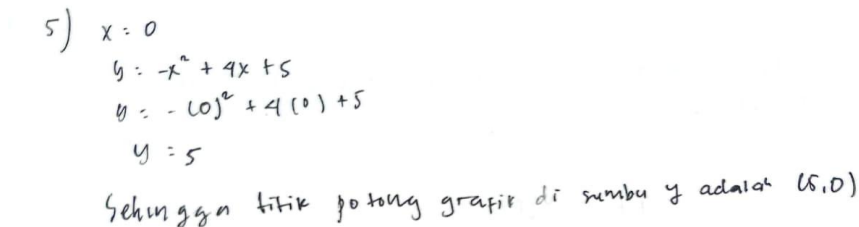 5) x = 0
y = -x² + 4x + 5
y = -(0)² + 4(0) + 5
y = 5
Sehingga titik potong grafik di sumbu y adalah (5,0)